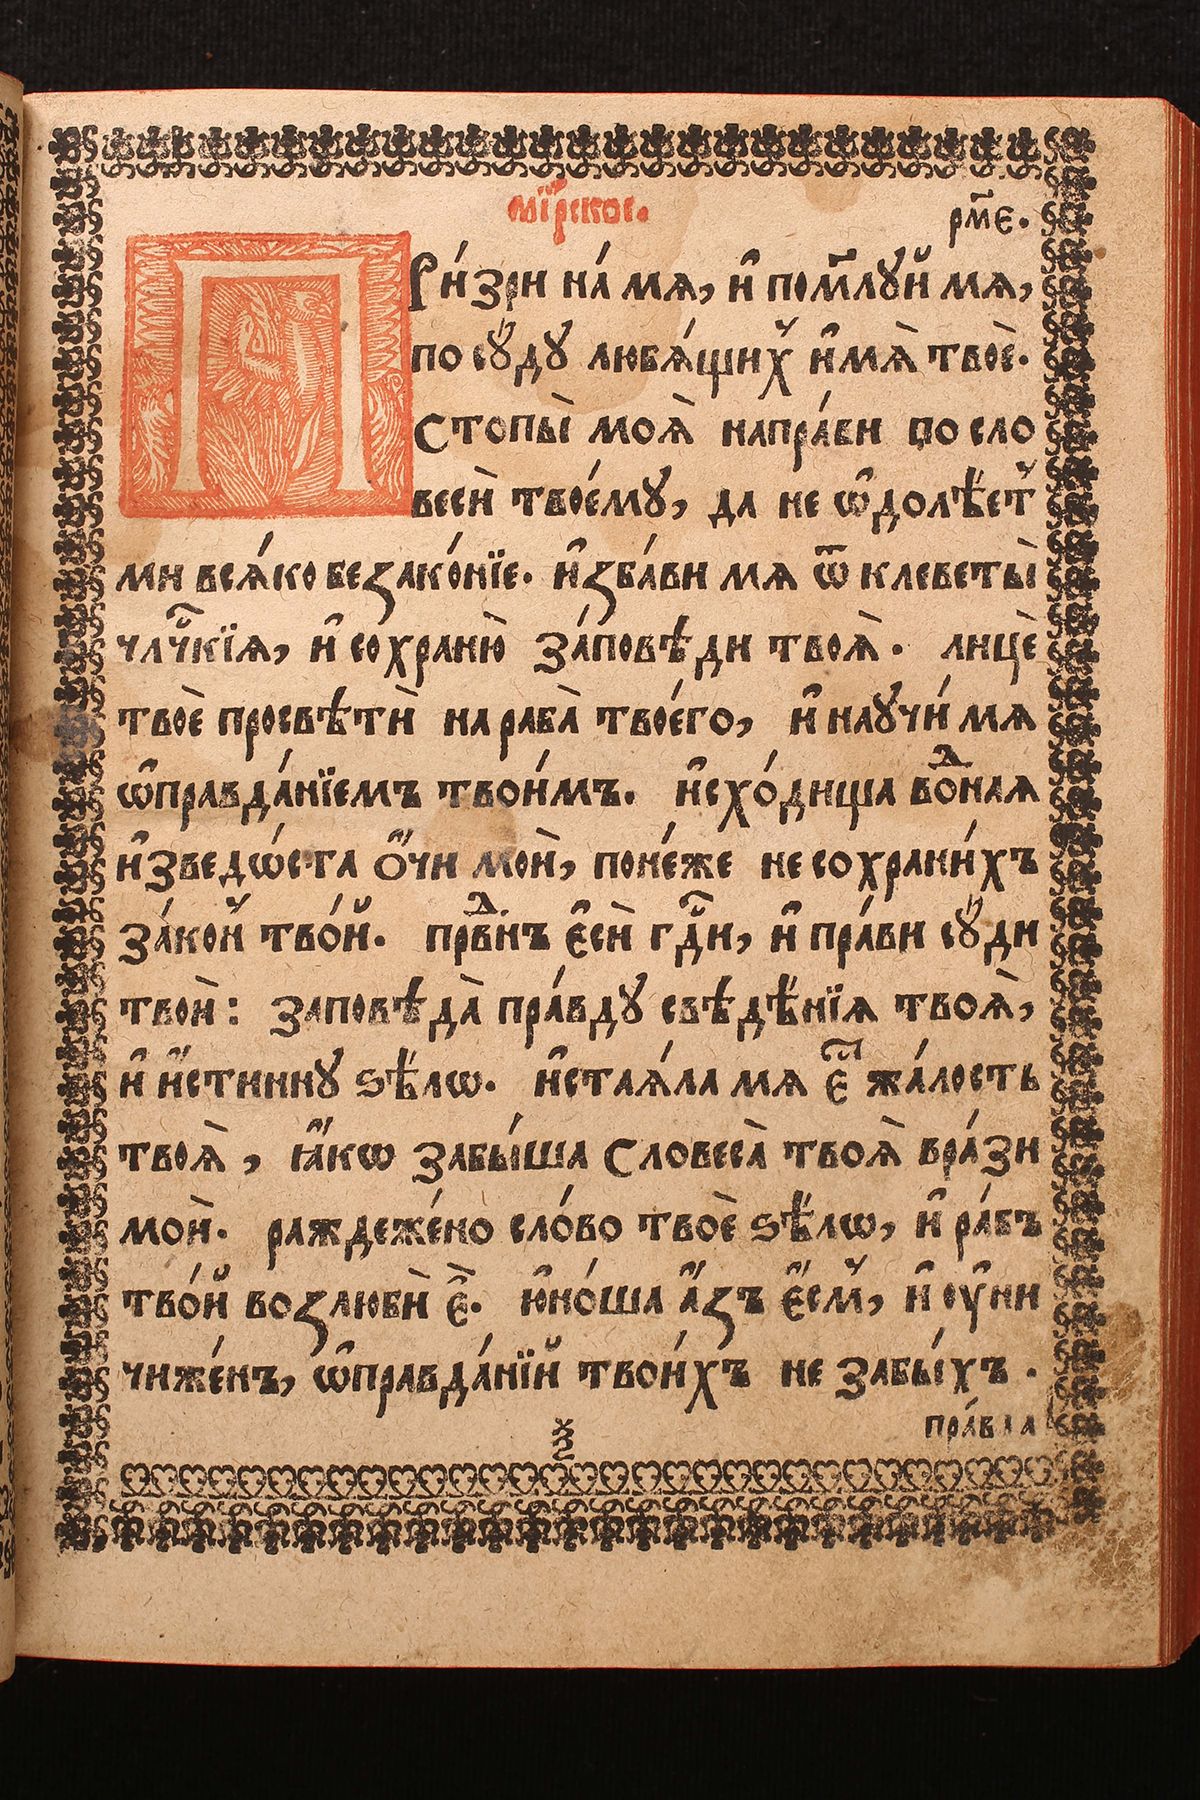 мі́рское.
рм҃є.
При́зри на́ мя, и҆ пом҃луй мя,
по сꙋ҆дꙋ любѧ́щих̾ и҆мѧ̀ твоѐ.
Стопы̀ моѧ̀ напра́ви по сло
весѝ твоемꙋ̀, да не ѡ҆долѣ́ет̾
ми всѧ́ко безако́нїе. и҆зба́ви мѧ ѿ клеветы̀
чл҃ч҇кїѧ, и҆ сохраню̀ за́повѣди твоѧ̀. лицѐ
твоѐ просвѣтѝ на раба̀ твоего̀, и҆ наꙋчи́ мѧ
ѡ҆правда́нїемъ твои́мъ. и҆схо́дища во́ⷣнаѧ
и҆зведѡ́ста ѻ҆́чи моѝ, поне́же не сохрани́хъ
за́кон̾ тво́й. прв́ⷣнъ є҆сѝ гдⷭ҇и, и҆ пра́ви сꙋ҆ди
твоѝ: заповѣда̀ пра́вдꙋ свѣдѣ́нїѧ твоѧ̀,
и҆ и҆́стиннꙋ ѕѣ́лѡ. и҆стаѧ́ла мѧ є҆сⷭ҇ жа́лость
твоѧ̀, ꙗ҆́кѡ забы́ша словеса̀ твоѧ̀ вра́зи
моѝ. раждеже́но сло́во твоѐ ѕѣ́лѡ, и҆ ра́бъ
тво́й возлюбѝ є҆̀. ю҆но́ша а҆́зъ є҆́см̾, и҆ ᲂу҆ни
чиже́нъ, ѡ҆правда́нїй твои́хъ не забы́хъ.
пра́вда